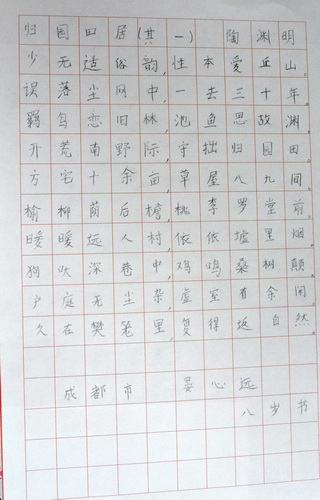 归园田居(其一) 陶渊明
少无适俗韵,性本爱丘山。
误落尘网中,一去三十年。
羁鸟恋旧林,池鱼思故渊。
开荒南野际,守拙归园田。
方宅十余亩,草屋八九间。
榆柳荫后檐,桃李罗堂前。
暖暖远人村,依依墟里烟。
狗吠深巷中,鸡鸣桑树颠。
户庭无尘杂,虚室有余闲。
久在樊笼里,复得返自然。
成都市 晏心远
八岁书